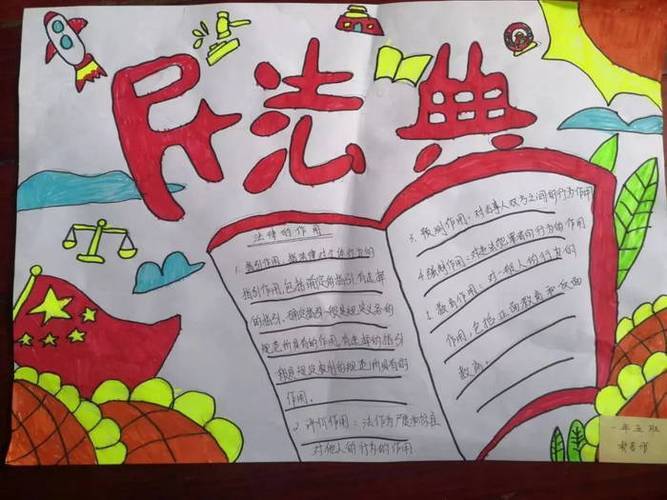 民法典
法律的作用
1. 指引作用：指法律对个体行为的
指引作用,包括确定的指引、有选择
的指引。确定指引一般是规定义务的
规范所具有的作用,有选择的指引
一般是规定权利的规范所具有的
作用。
2. 评价作用：法作为尺度和标准
对他人的行为的作用
3. 预测作用：对当事人双方之间的行为作用
4. 强制作用：对违法犯罪者的行为的作用
5. 教育作用：对一般人的行为的
作用,包括正面教育和反面
教育。
一年五班